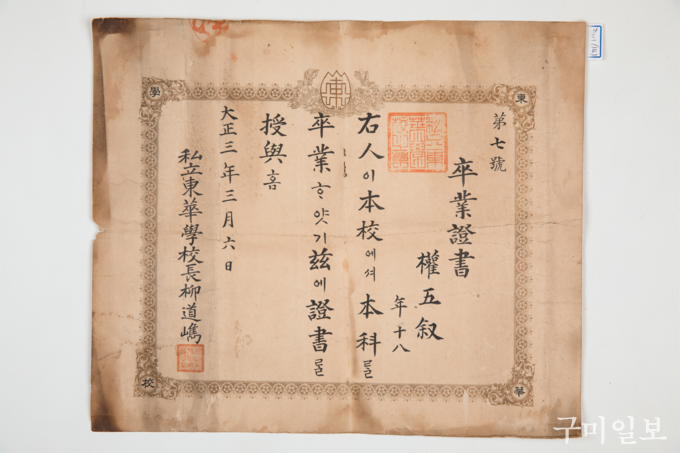 第七號
卒業證書
權五叙
年十八
右人이本校에셔本科를
卒業ᄒᆞ얏기玆에證書를
授與홈
大正三年三月六日
私立東華學校長柳道嶲
東
華
學
校
구미일보